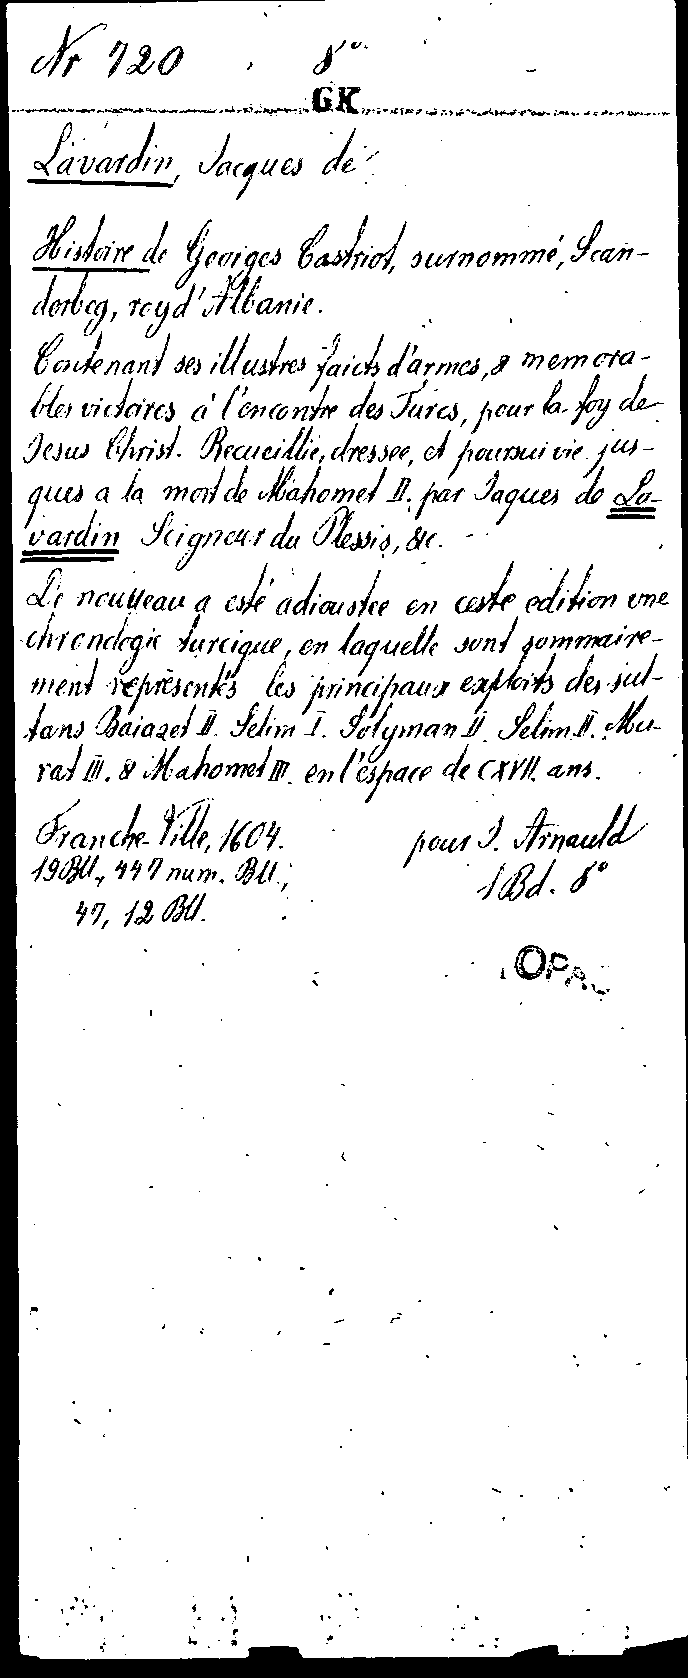 Nr 720 8°
GK
Lavardin, Jacques de
Histoire de Georges Castriot, surnommé, Scan-
derbeg, roy d'Albanie.
Contenant ses illustres faicts d'armes, & memora-
bles victoires à l'encontre des Turcs, pour la foy de
Jesus Christ. Recueillie, dressee, et poursuivie jus-
ques a la mort de Mahomet II. par Jaques de La-
vardin Seigneur du Plessis, &c.
De nouveau a esté adioustee en ceste edition vne
chronologie turcique, en laquelle sont sommaire-
ment représentés les principaux exploits des sul-
tans Baiazet II. Selim I. Solyman II. Selim II. Mu-
rat III. & Mahomet III. en l'éspace de CXVII. ans.
Franche-Ville, 1604. pour J. Arnauld
19 Bll., 447 num. Bll., 1 Bd. 8°
47, 12 Bll.
OPAC